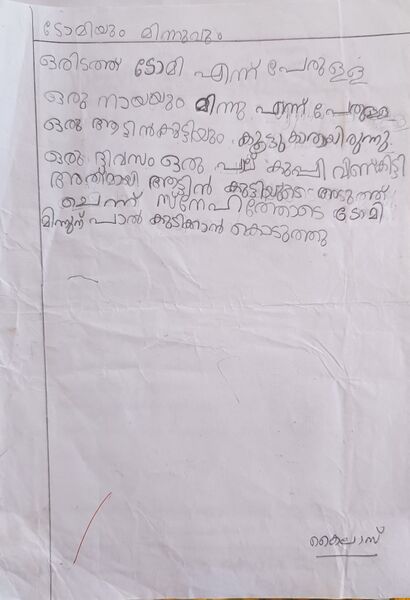 ടോമിയും മിന്നുവും
ഒരിടത്ത് ടോമി എന്ന് പേരുള്ള
ഒരു നായയും മിന്നു എന്ന് പേരുള്ള
ഒരു ആട്ടിൻകുട്ടിയും കൂട്ടുകാരായിരുന്നു
ഒരു ദിവസം ഒരു പാല് കുപ്പി വീണ്കിട്ടി
അതുമായി ആട്ടിൻ കുട്ടിയുടെ അടുത്ത്
ചെന്ന് സ്നേഹത്തോടെ ടോമി
മിന്നുന് പാൽ കുടിക്കാൻ കൊടുത്തു
കൈലാസ്